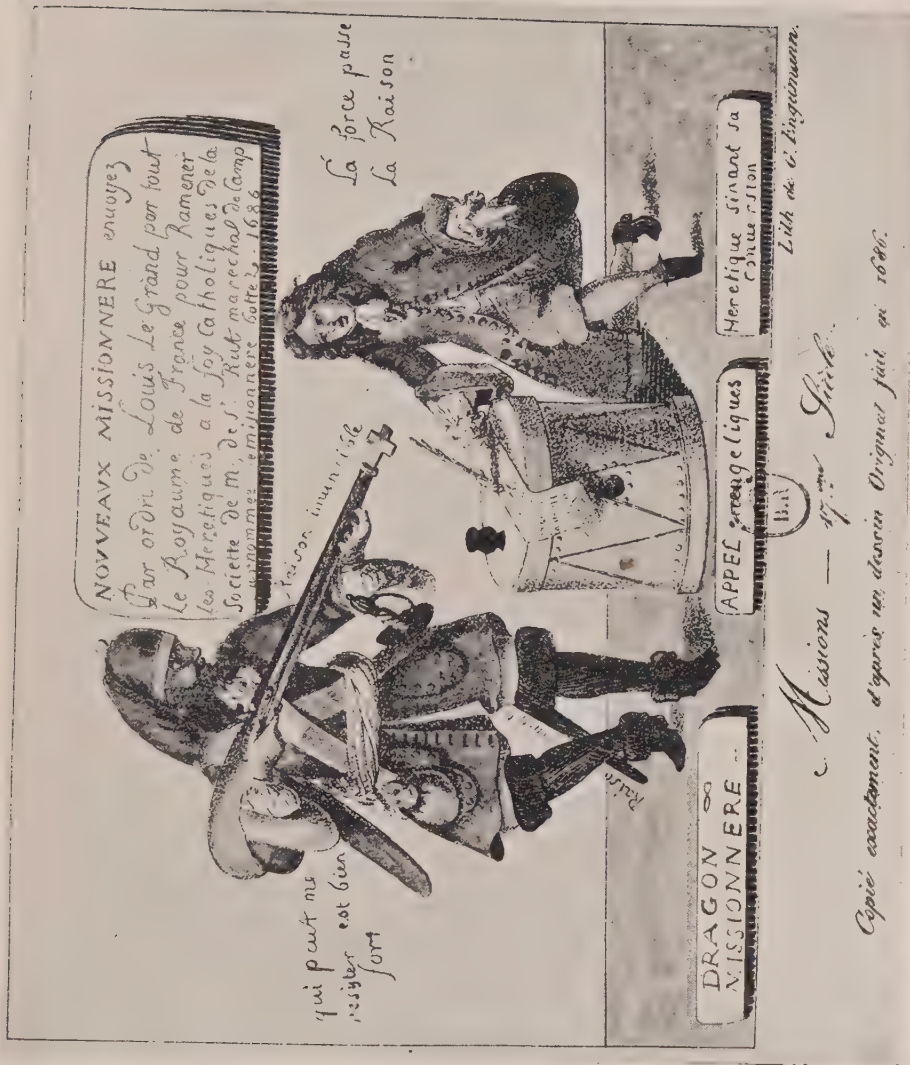 NOVVEAVX MISSIONNERE envoyez
Par ordre de Louis Le Grand par tout
Le Royaume de France pour Ramener
les Heretiques a la foy Catholiques de la
Soriette de m. de s! Rut marechal de Camp
surnommez missionnere bottez. 1686
qui peut me
resister est bien
fort
raison invincible
La force passe
La Raison
Raison
DRAGON
MISSIONNERE
APPEL evangeliques
Heretique sinant sa
conversion
B.R
Lith de C. Lingimann.
Missions — 17me Siècle.
Copié exactement, d'après un dessin Original fait en 1686.